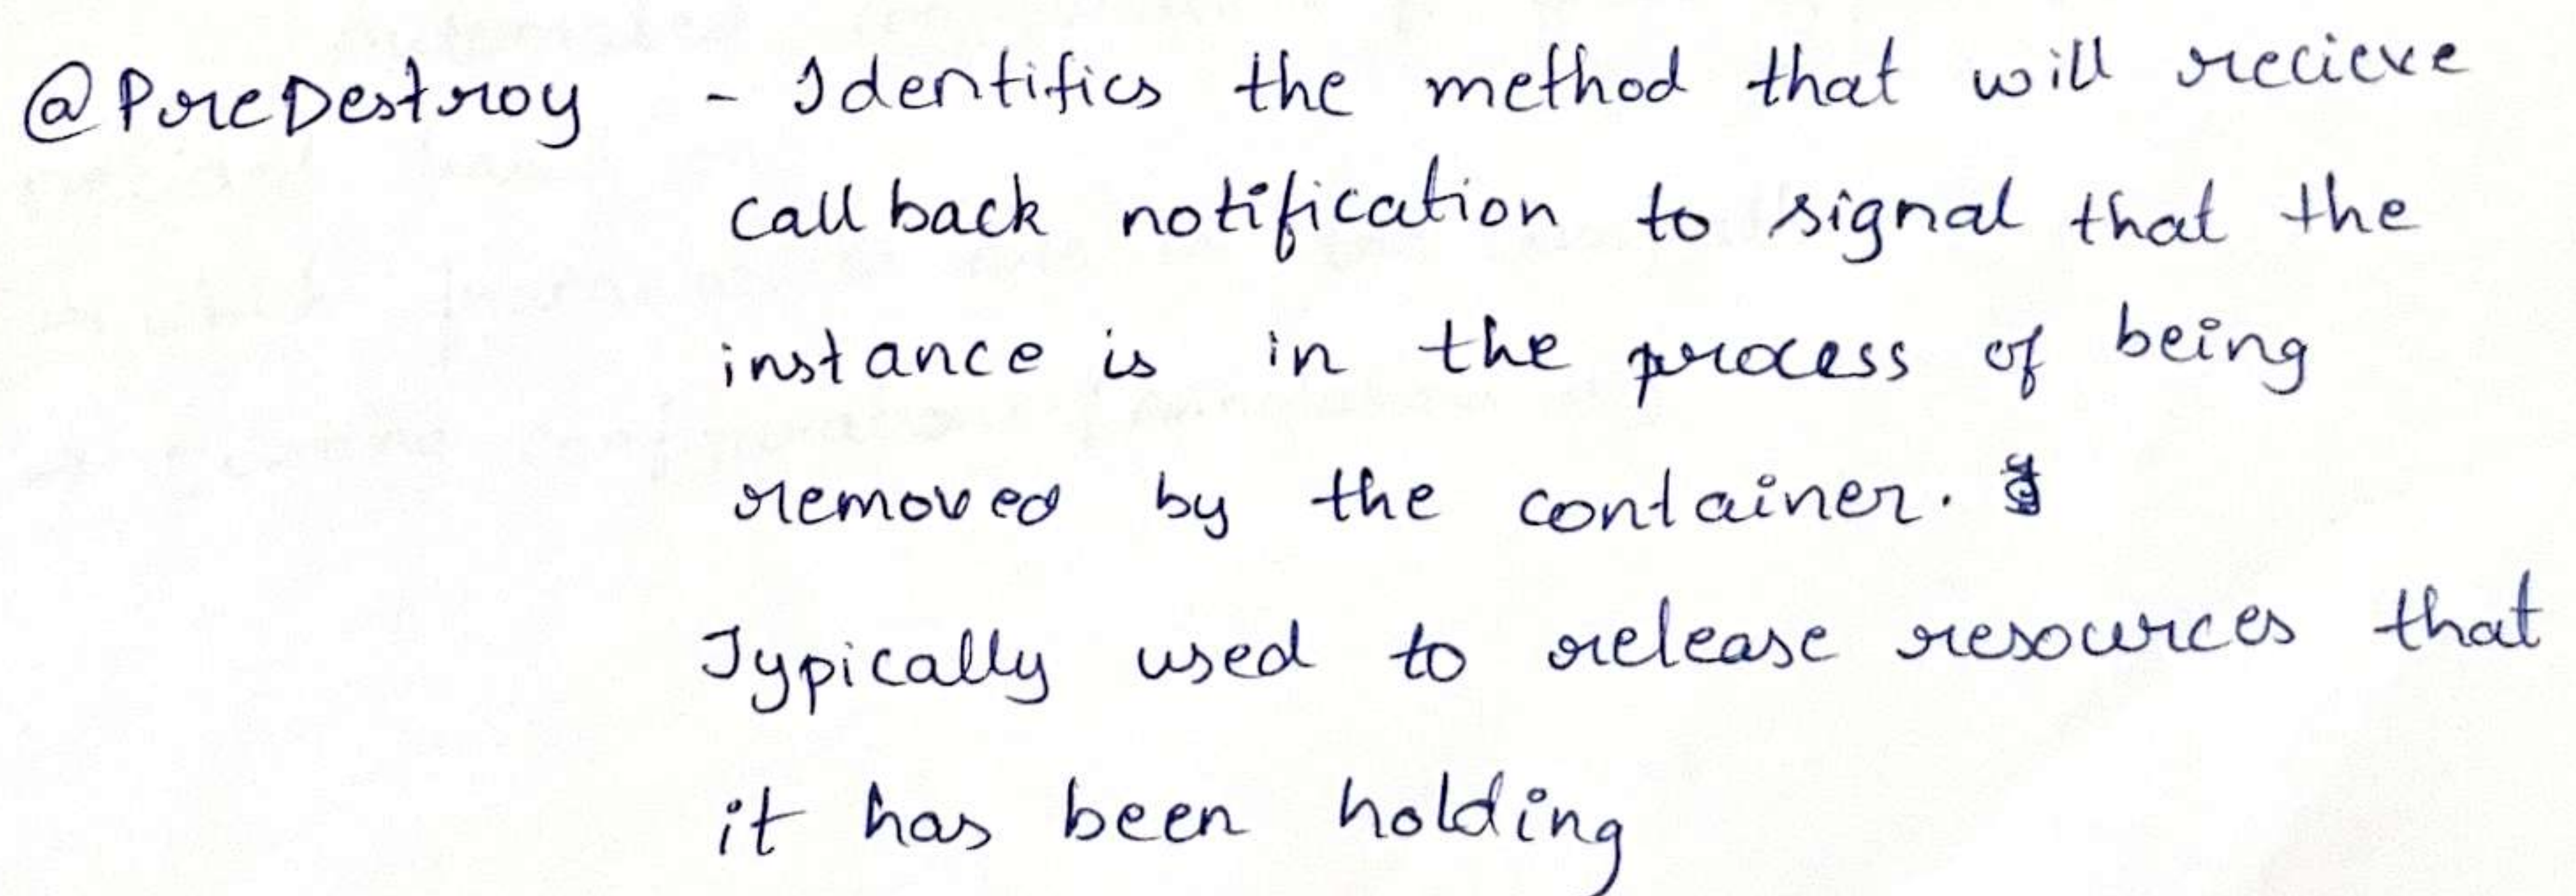 @PreDestroy - Identifies the method that will recieve
call back notification to signal that the
instance is in the process of being
removed by the container.
Typically used to release resources that
it has been holding